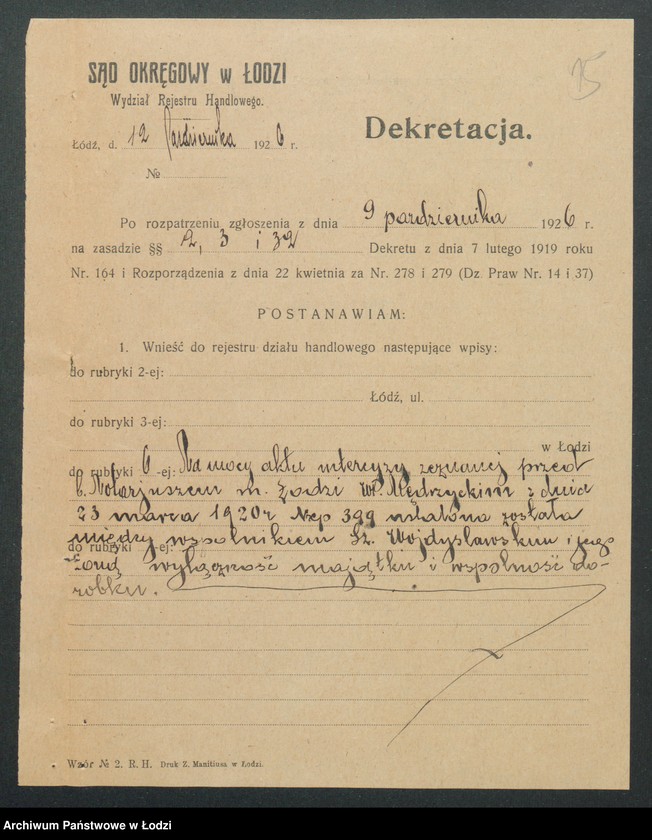 SĄD OKRĘGOWY w ŁODZI
Wydział Rejestru Handlowego.
75
Łódź, d. 12 Października 1926 r.
Dekretacja.
№
Po rozpatrzeniu zgłoszenia z dnia 9 października 1926 r.
na zasadzie §§ 2, 3 i 32 Dekretu z dnia 7 lutego 1919 roku
Nr. 164 i Rozporządzenia z dnia 22 kwietnia za Nr. 278 i 279 (Dz Praw Nr. 14 i 37)
POSTANAWIAM:
1. Wnieść do rejestru działu handlowego następujące wpisy:
do rubryki 2-ej:
Łódź, ul.
do rubryki 3-ej:
w Łodzi
do rubryki 6-ej: Na mocy aktu intercyzy zeznanej przed
b. Notarjuszem m. Łodzi Wł. Mędrzyckim z dnia
23 marca 1920 r Rep 399 ustalona została
między wspólnikiem Sz. Wojdysławskim i jego
do rubryki -ej:
żoną wyłączność majątku i wspólność do-
robku.
Wzór № 2. R. H. Druk Z. Manitiusa w Łodzi.
Archiwum Państwowe w Łodzi